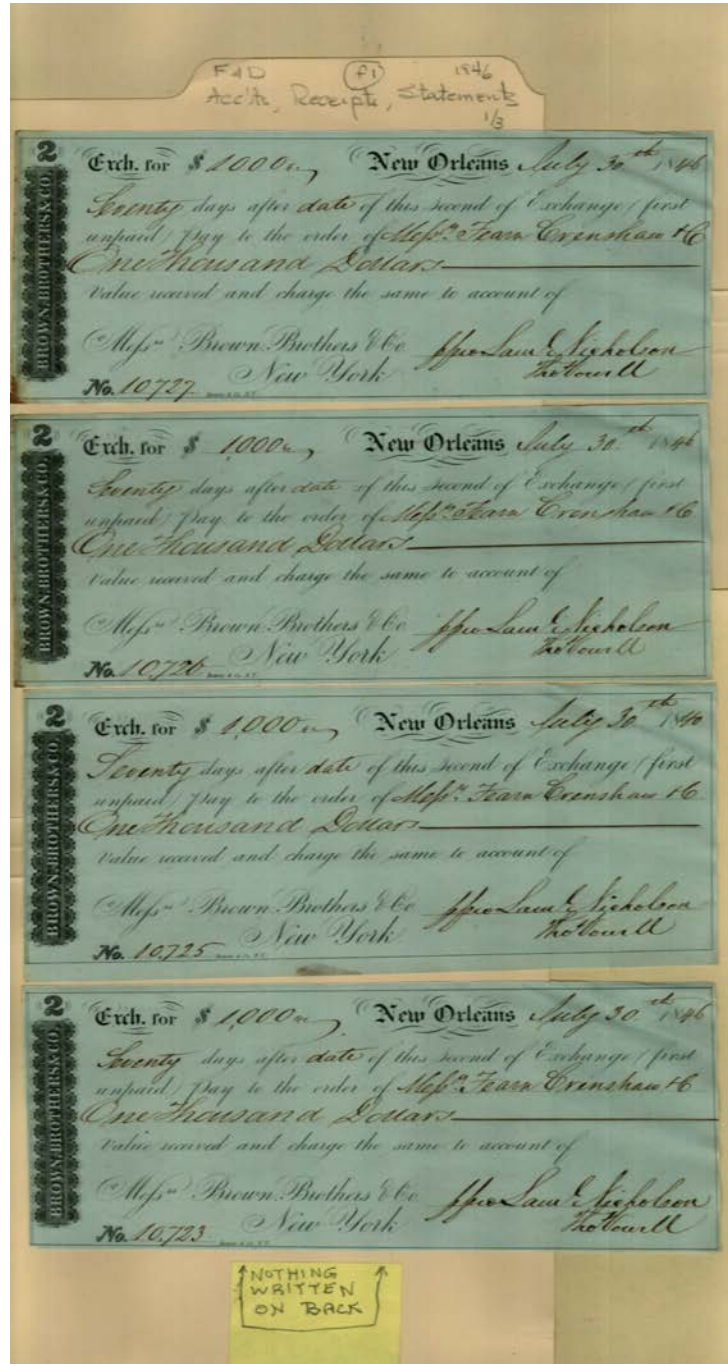 F&D f1 1846
Acc'ts, Receipts, Statements
1/3
2
BROWN, BROTHERS & CO.
Exch. for $ 1000 New Orleans July 30th 1846
Seventy days after date of this second of Exchange (first
unpaid) Pay to the order of Messrs. Fearn Crenshaw & C
One Thousand Dollars
Value received and charge the same to account of
Messrs. Brown Brothers & Co ppro Saml Nicholson
New York
No. 10727
2
BROWN, BROTHERS & CO.
Exch. for $ 1,000 New Orleans July 30th 1846
Seventy days after date of this second of Exchange (first
unpaid) Pay to the order of Messrs. Fearn Crenshaw & C
One Thousand Dollars
Value received and charge the same to account of
Messrs. Brown Brothers & Co ppro Saml Nicholson
New York
No. 10,726
2
BROWN, BROTHERS & CO.
Exch. for $ 1,000 New Orleans July 30th 1846
Seventy days after date of this second of Exchange (first
unpaid) Pay to the order of Messrs. Fearn Crenshaw & C
One Thousand Dollars
Value received and charge the same to account of
Messrs. Brown Brothers & Co ppro Saml Nicholson
New York
No. 10,725
2
BROWN, BROTHERS & CO.
Exch. for $ 1,000 New Orleans July 30th 1846
Seventy days after date of this second of Exchange (first
unpaid) Pay to the order of Messrs. Fearn Crenshaw & C
One Thousand Dollars
Value received and charge the same to account of
Messrs. Brown Brothers & Co ppro Saml Nicholson
New York
No. 10,723
NOTHING
WRITTEN
ON BACK